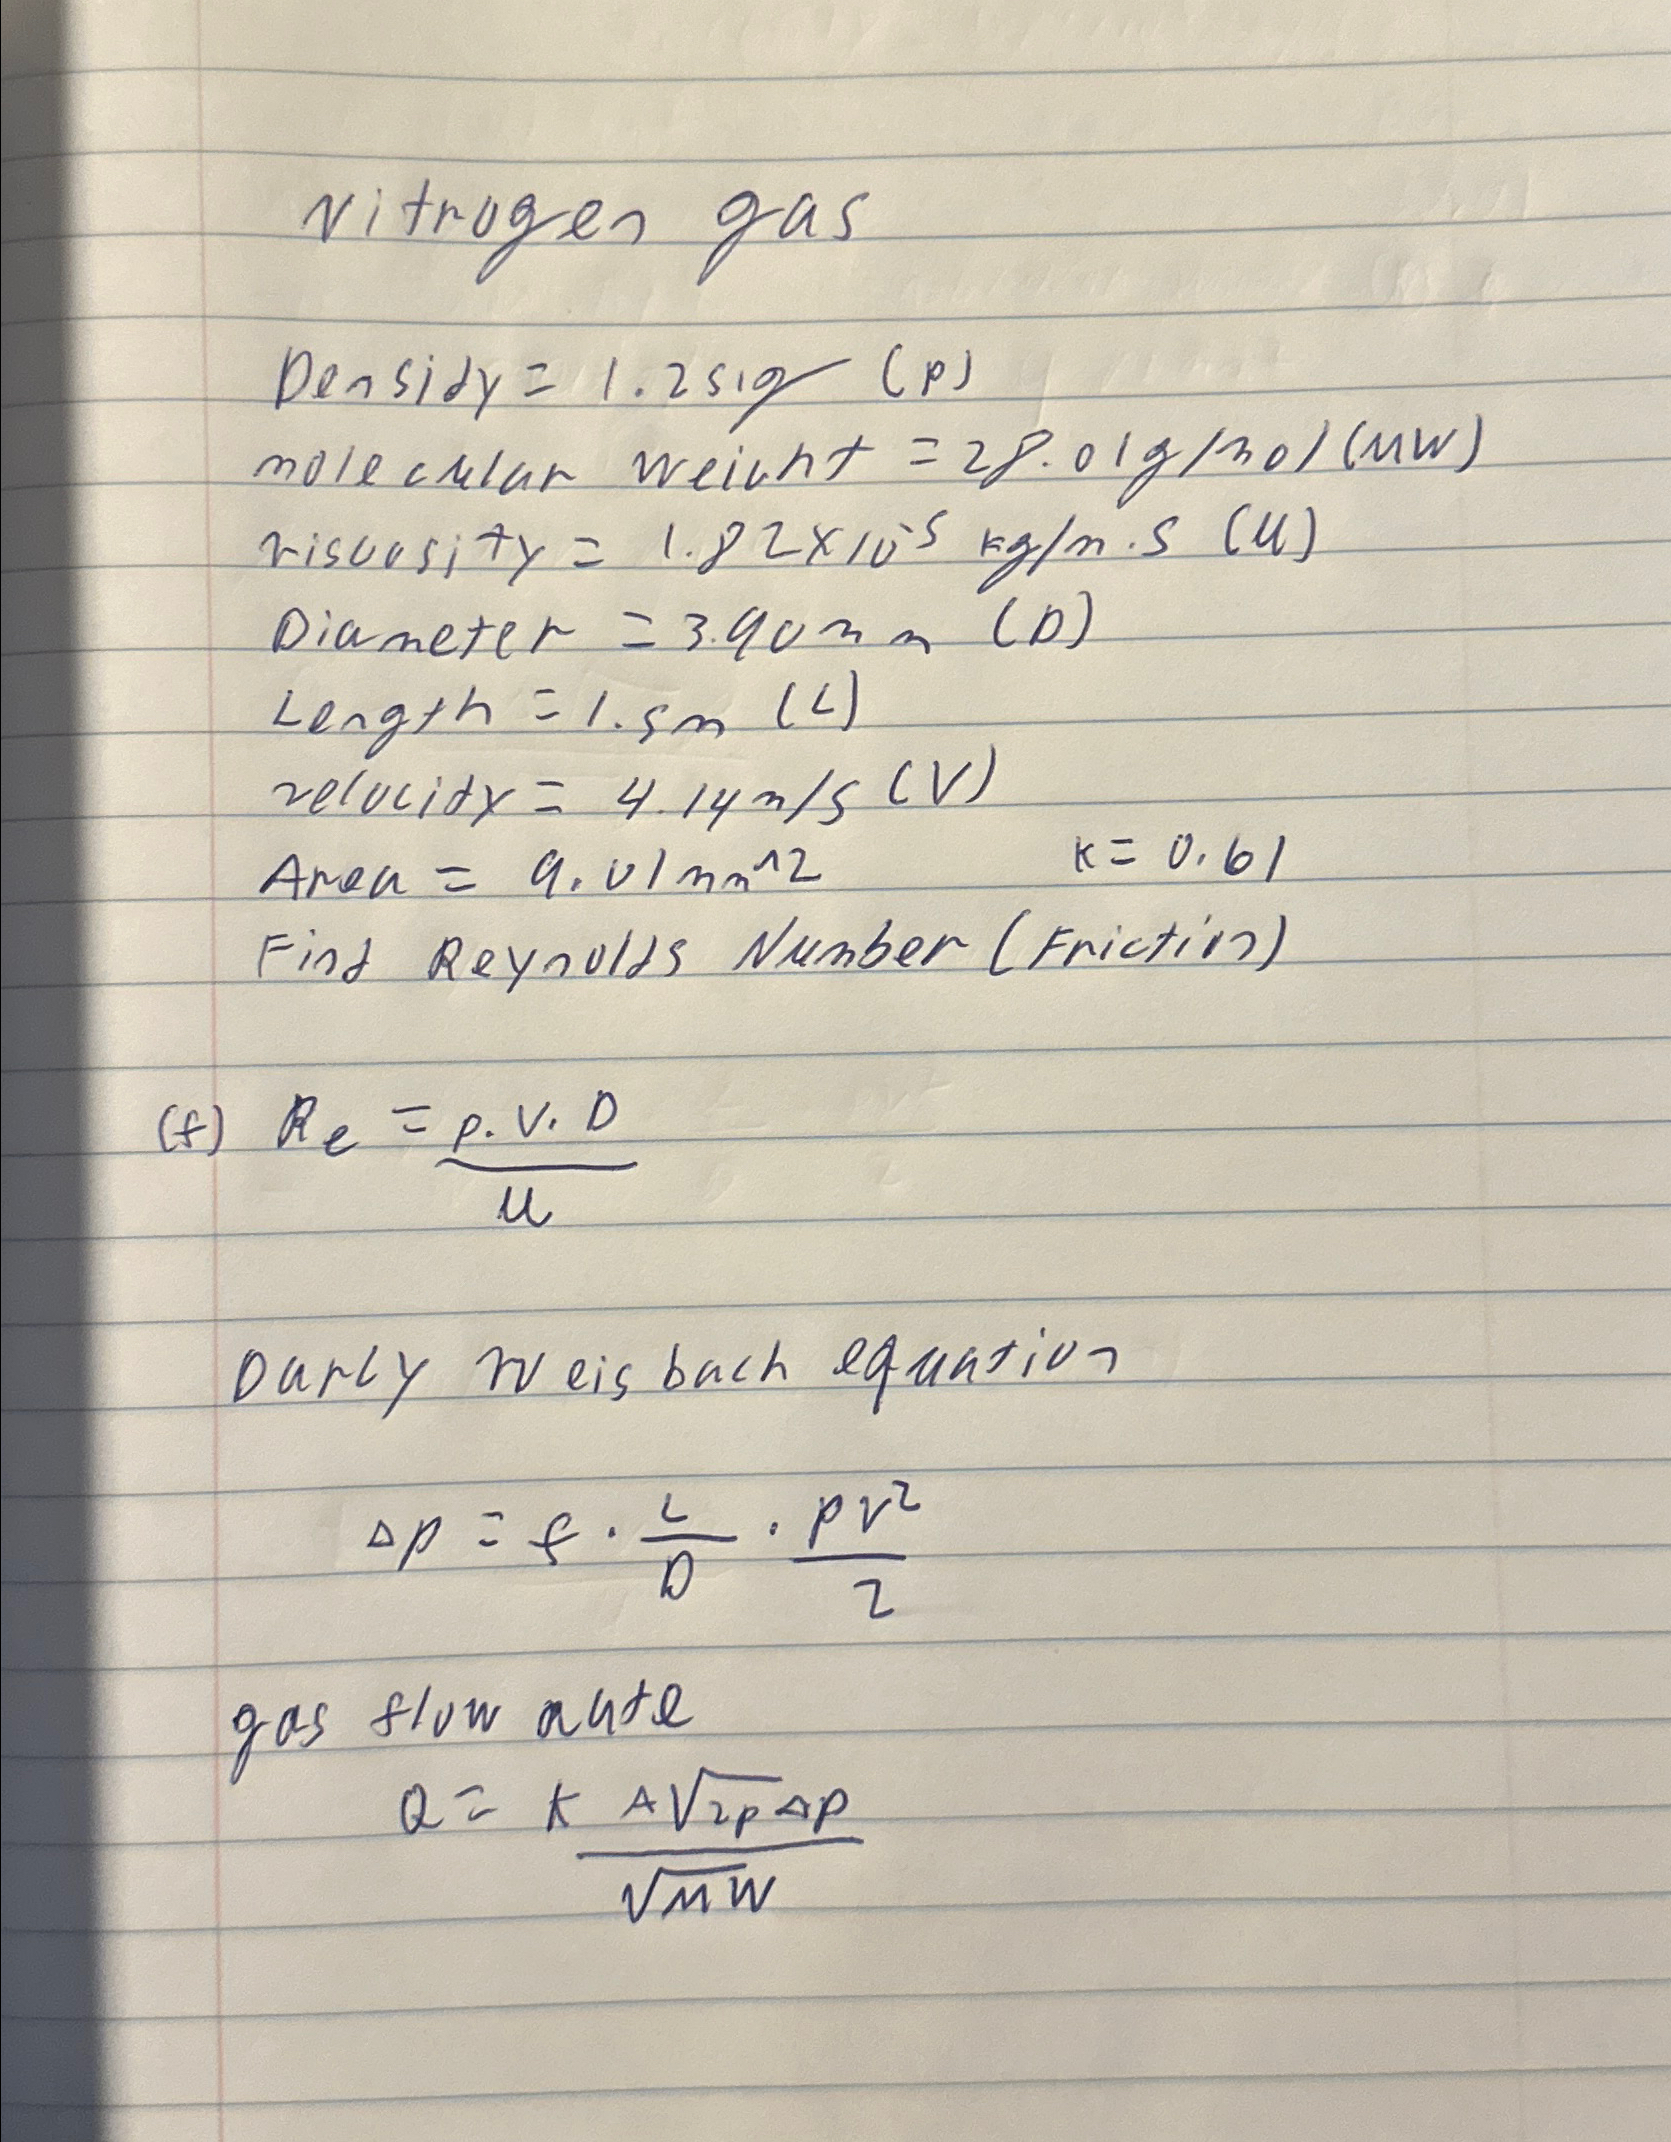 Nitrogen gas
Density = 1.251g (p)
molecular weight = 28.01g/mol (MW)
viscosity = 1.82x10^-5 kg/m.s (μ)
Diameter = 3.90mm (D)
Length = 1.5m (L)
velocity = 4.14m/s (V)
Area = 9.01mm^2 K = 0.61
Find Reynolds Number (Friction)
(f) Re = p.V.D
μ
Darcy Weisbach equation
Δp = f . L/D . pv²/2
gas flow rate
Q = K A√2pΔp
√MW